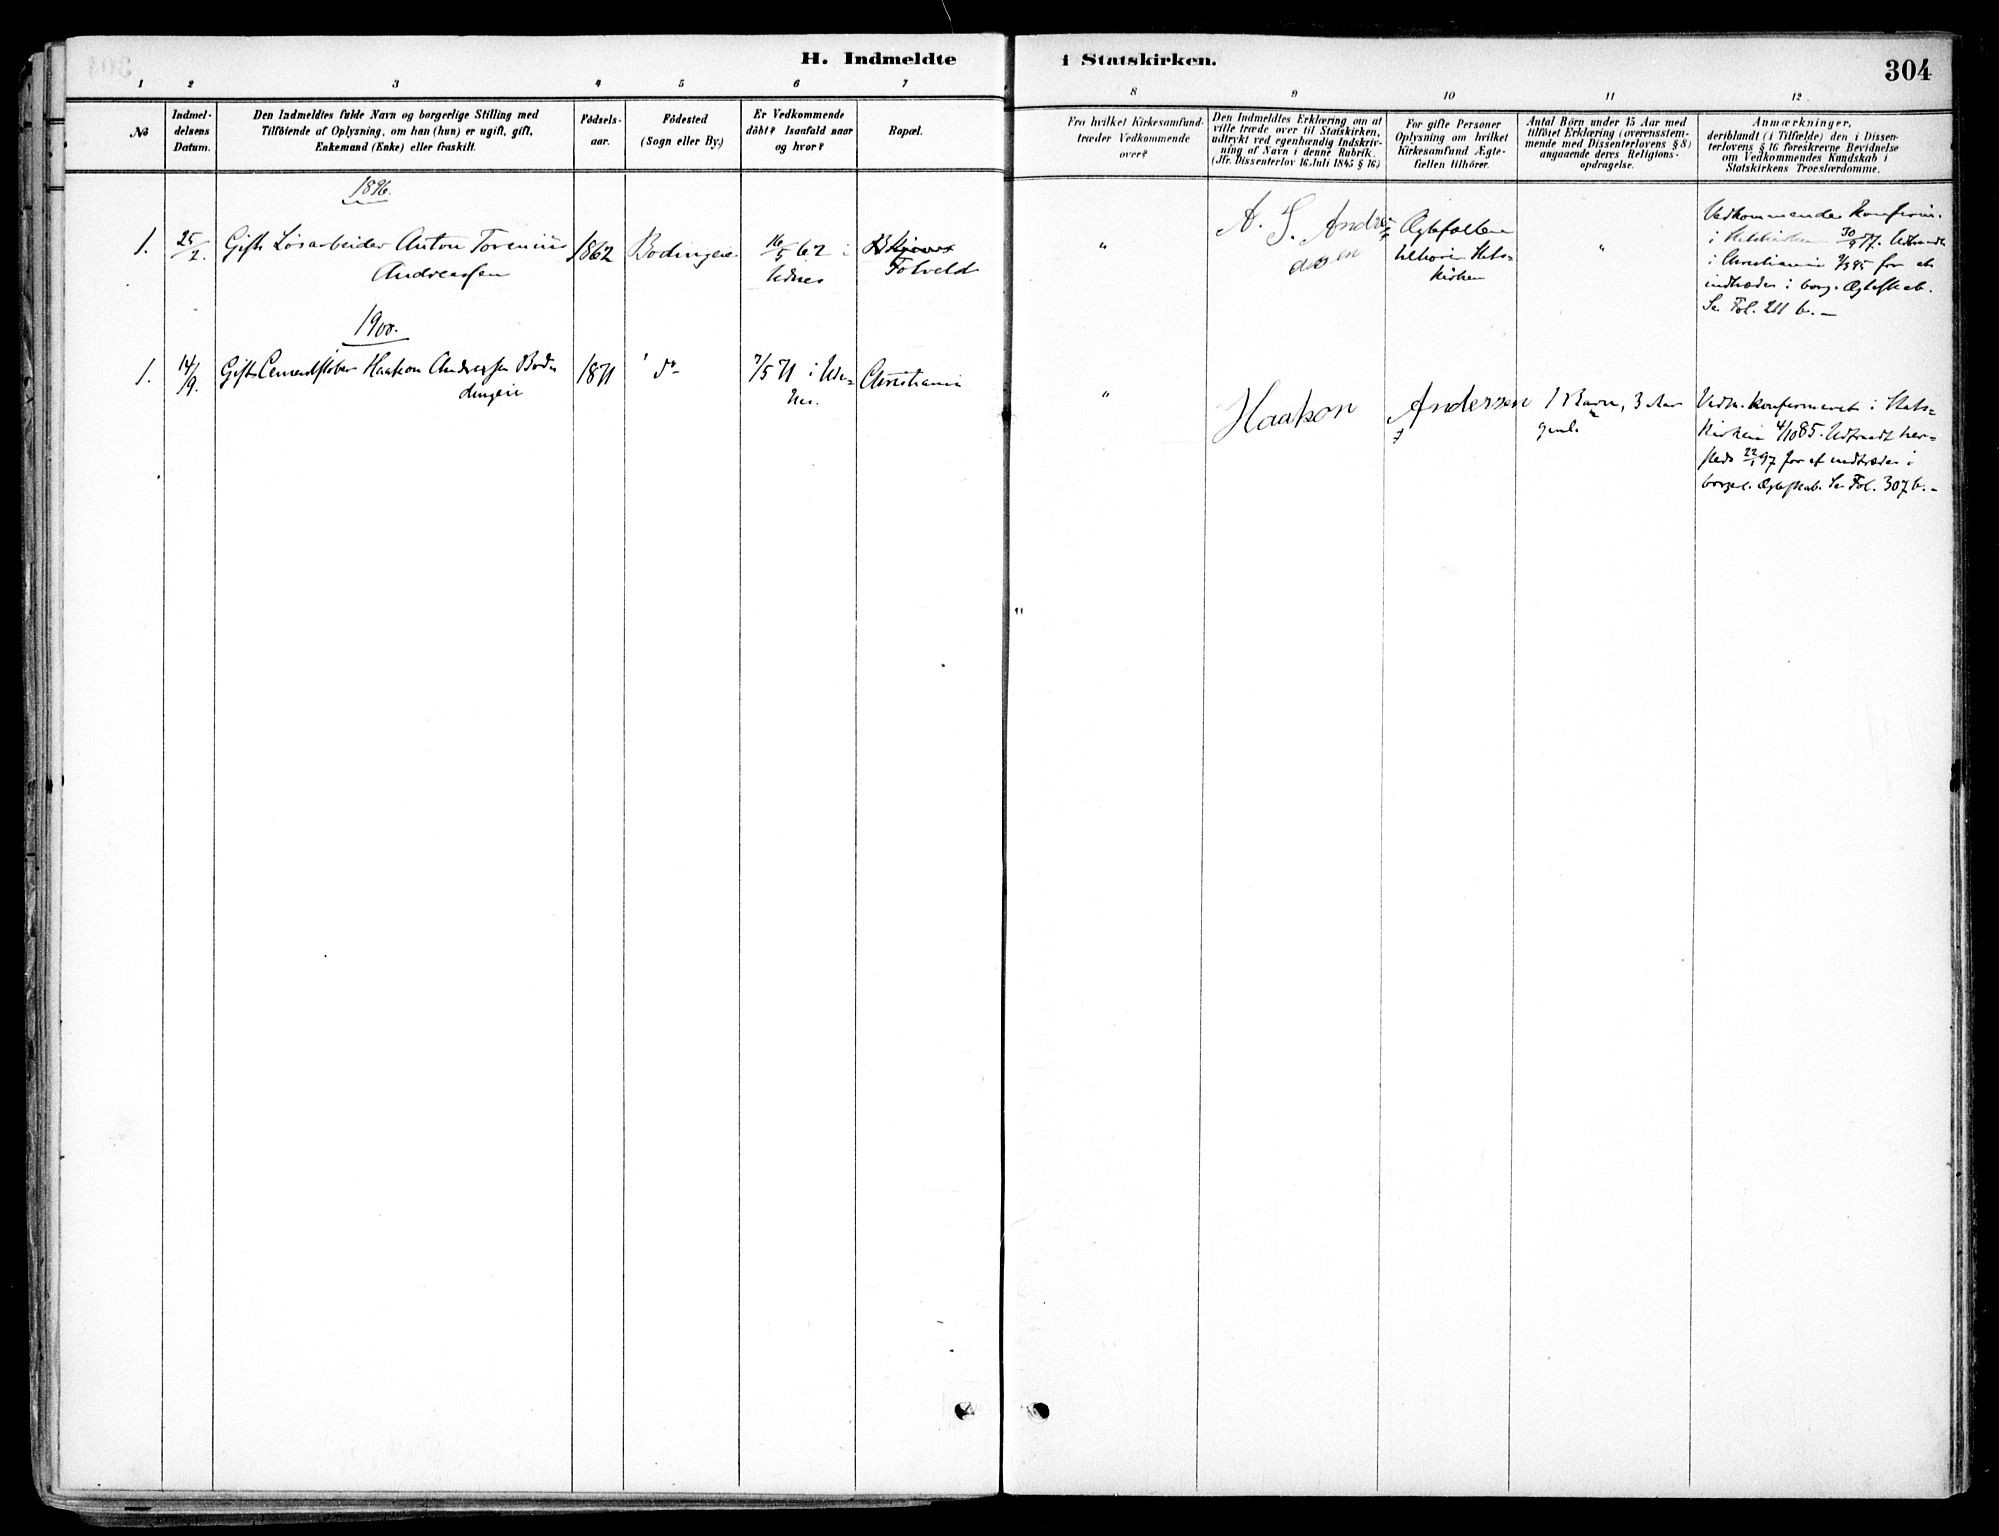 H. Indmeldte i Statskirken.
304
1 2 3 4 5 6 7 8 9 10 11 12
No
Indmel-
delsens
Datum.
Den Indmeldtes fulde Navn og borgerlige Stilling med
Tilföiende af Oplysning, om han (hun) er ugift, gift,
Enkemand (Enke) eller fraskilt.
Födsels-
aar.
Födested
(Sogn eller By.)
Er Vedkommende
döbt? Isaafald naar
og hvor?
Bopæl.
Fra hvilket Kirkesamfund
træder Vedkommende
over?
Den Indmeldtes Erklæring om at
ville træde over til Statskirken,
udtrykt ved egenhændig Indskriv-
ning af Navn i denne Rubrik.
(Jfr. Dissenterlov 16 Juli 1845 § 16)
For gifte Personer
Oplysning om hvilket
Kirkesamfund Ægte-
fællen tilhörer.
Antal Börn under 15 Aar med
tilföiet Erklæring (overensstem-
mende med Dissenterlovens § 8)
angaaende deres Religions-
opdragelse.
Anmærkninger,
deriblandt (i Tilfælde) den i Dissen-
terlovens § 16 foreskrevne Bevidnelse
om Vedkommendes Kundskab i
Statskirkens Troeslærdomme.
1896.
1.
25/2.
Gift Lösarbeider Anton
Andreassen
1862
Bodingeie
16/5 62 i
Udnes
Folveld
"
A. S. Andre
asen
Ægtefællen
tilhörer Stats-
kirken
"
Vedkommende konfirm.
i Statskirken 30/9 77. Udtraadt
i Christiania 9/3 95 for at
indtræde i borg. Ægteskab.
Se Fol. 211 b. –
1900.
1.
14/9.
Gift Cementstöber Haakon Andersen Bod-
dingeie
1871
do
7/5 71 i Ude-
nes.
Christiania
"
Haakon Andersen
1 Barn, 3 Aar
gml.
Vedk. konfirmeret i Stats-
kirken 4/10 85. Udtraadt her-
steds 22/1 97 for at indtræde i
borgel. Ægteskab. Se Fol. 307 b. –